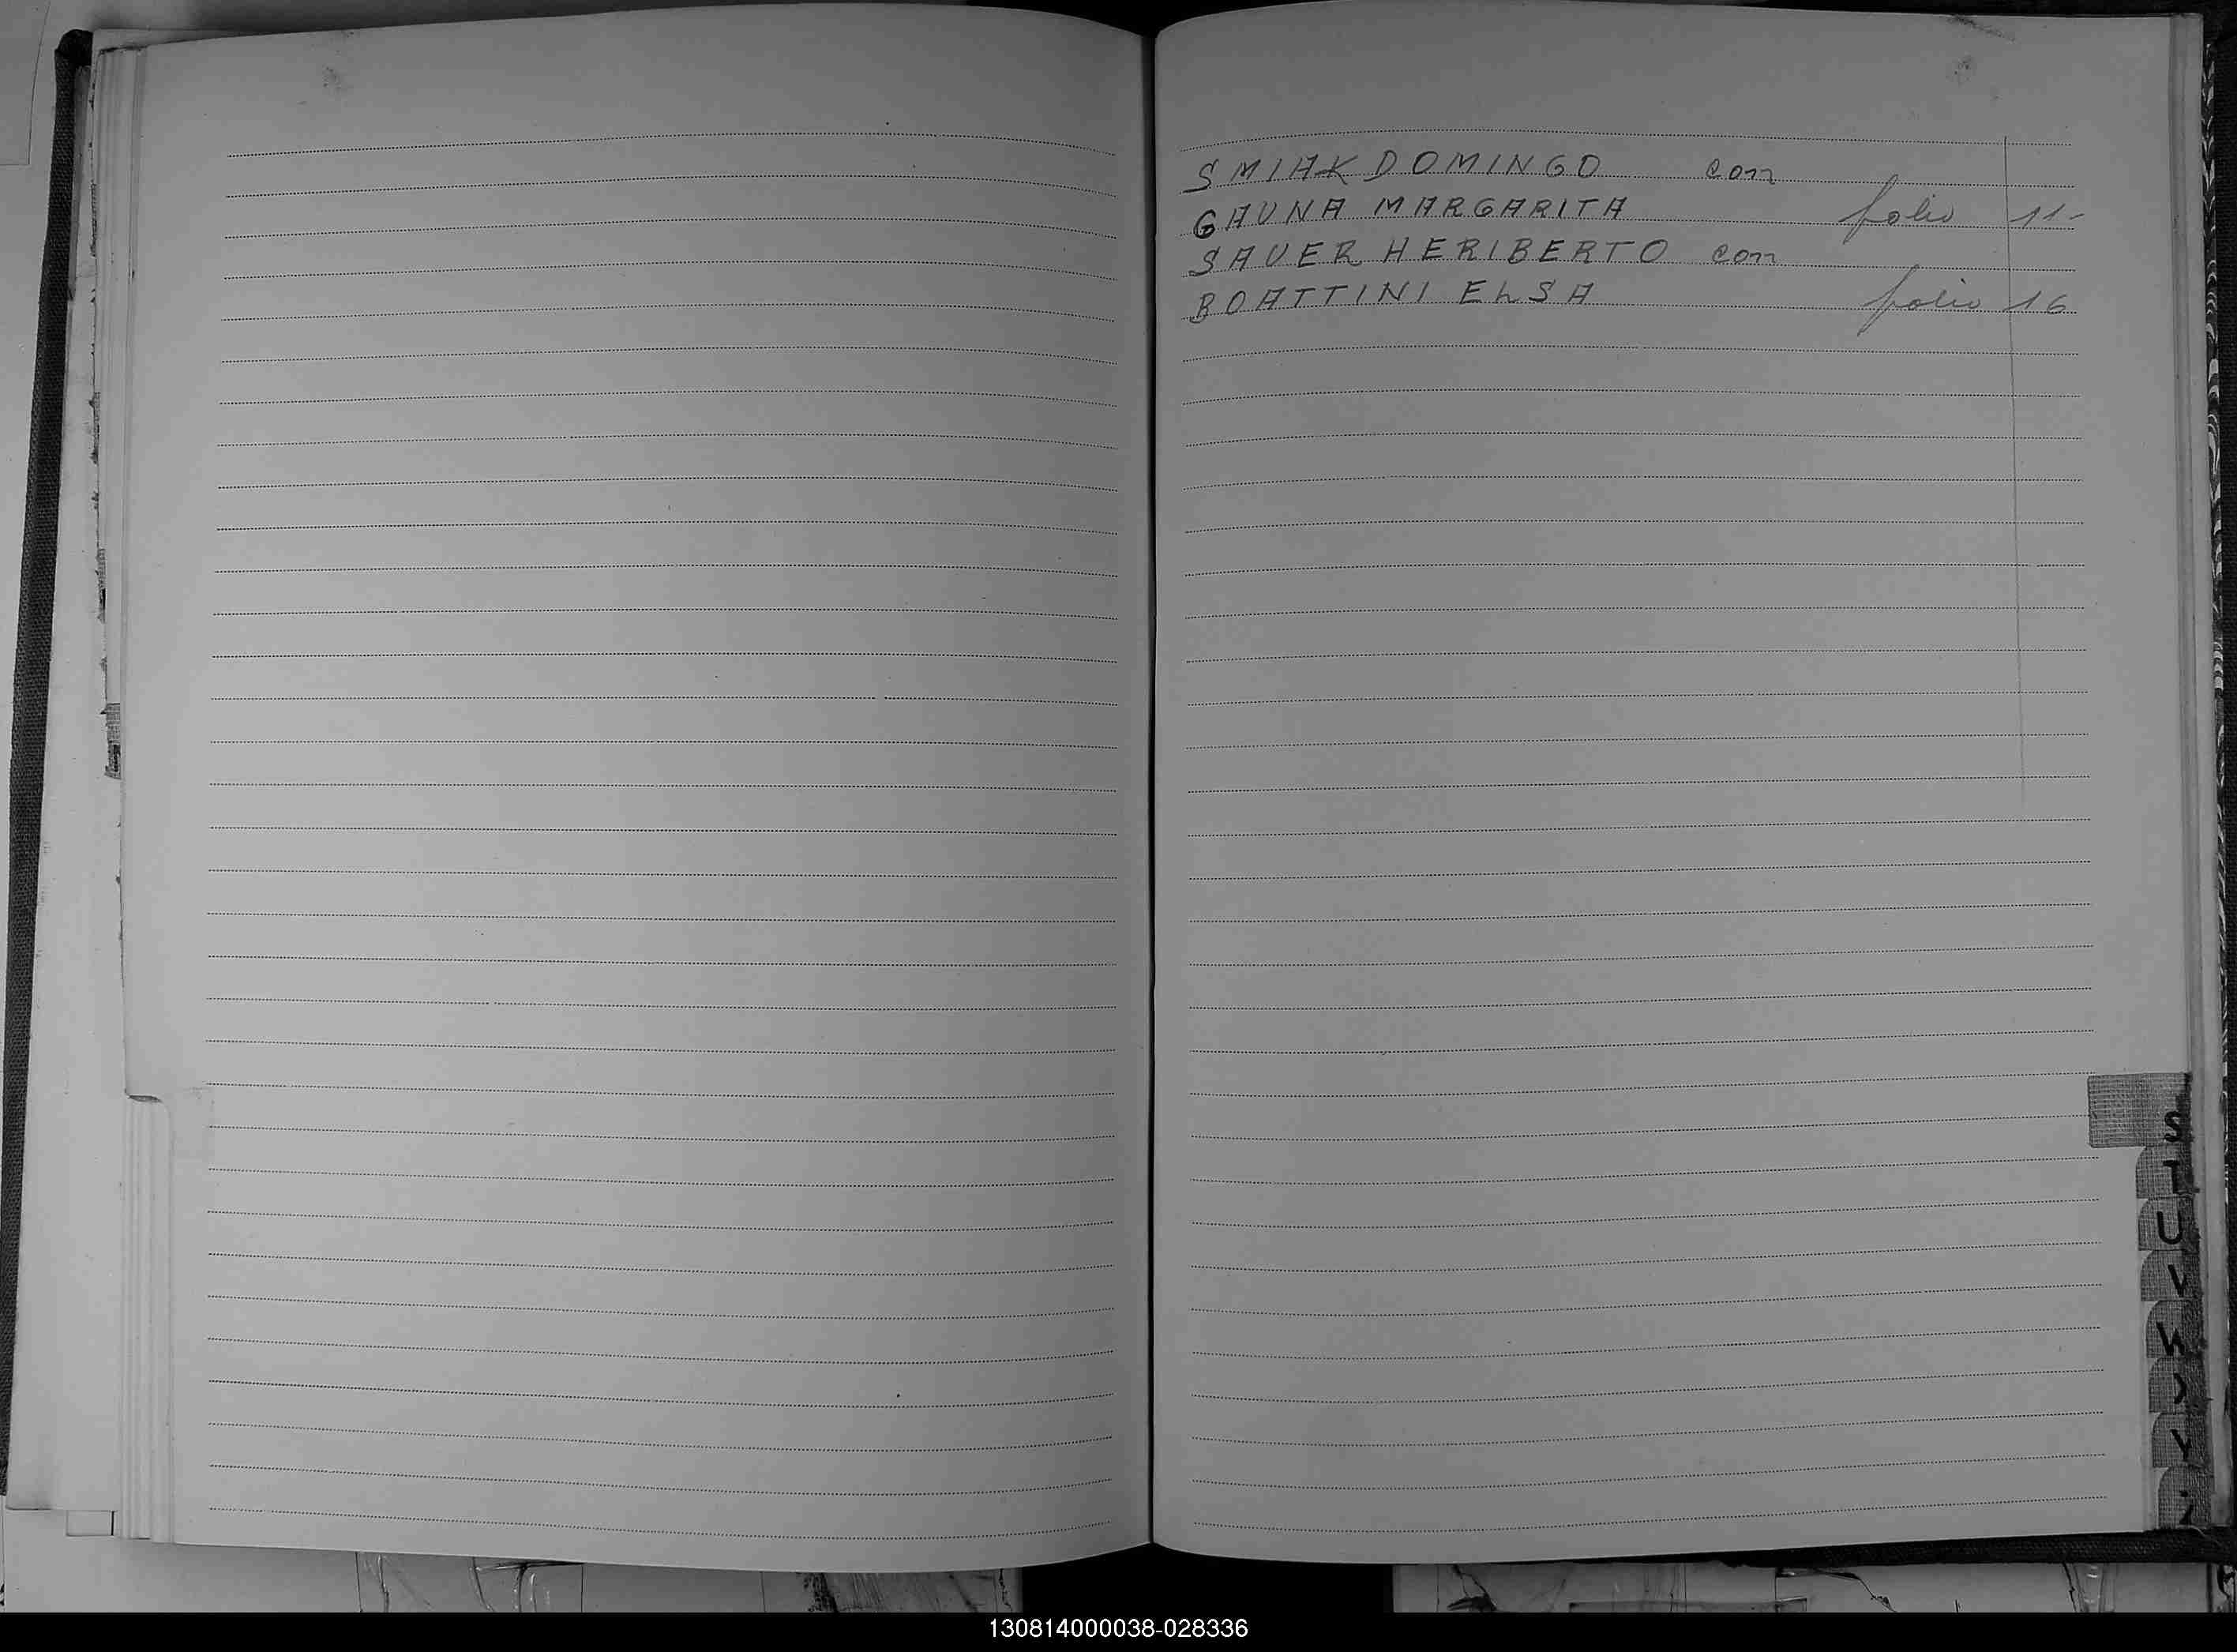 SMIAK DOMINGO con
GAUNA MARGARITA folio 11-
SAUER HERIBERTO con
BOATTINI ELSA folio 16
S
T
U
V
W
X
Y
Z
130814000038-028336